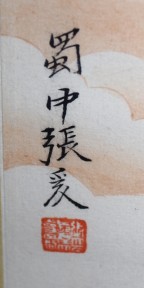 蜀中張爰